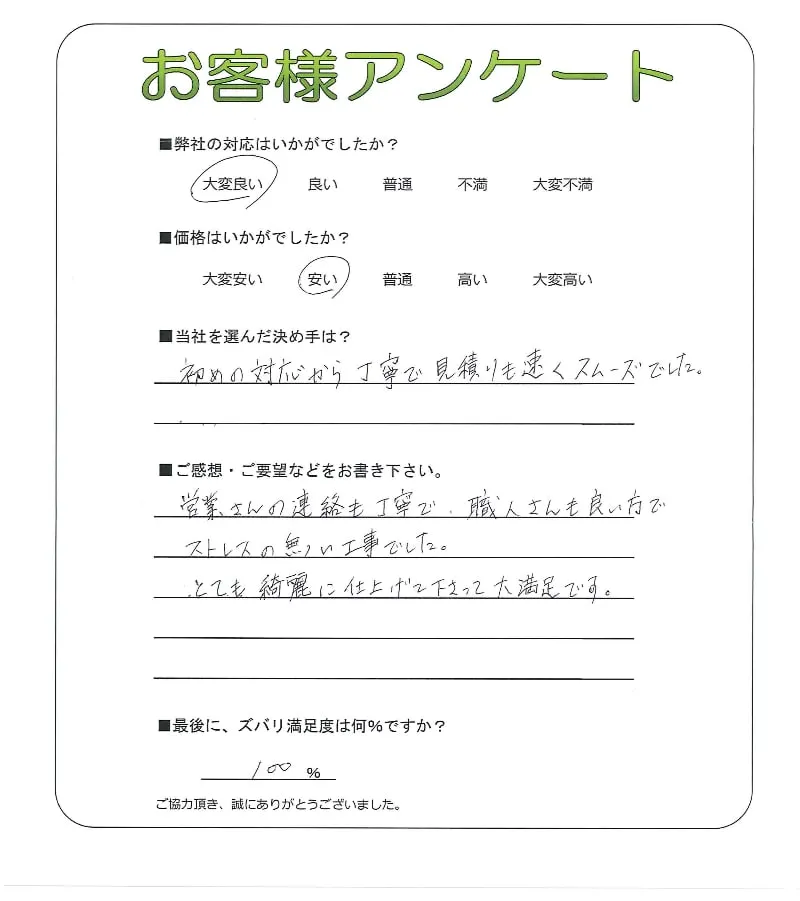 お客様アンケート
■弊社の対応はいかがでしたか？
大変良い 良い 普通 不満 大変不満
■価格はいかがでしたか？
大変安い 安い 普通 高い 大変高い
■当社を選んだ決め手は？
初めの対応から丁寧で見積りも速くスムーズでした。
■ご感想・ご要望などをお書き下さい。
営業さんの連絡も丁寧で、職人さんも良い方で
ストレスの無い工事でした。
とても綺麗に仕上げて下さって大満足です。
■最後に、ズバリ満足度は何%ですか？
100 %
ご協力頂き、誠にありがとうございました。